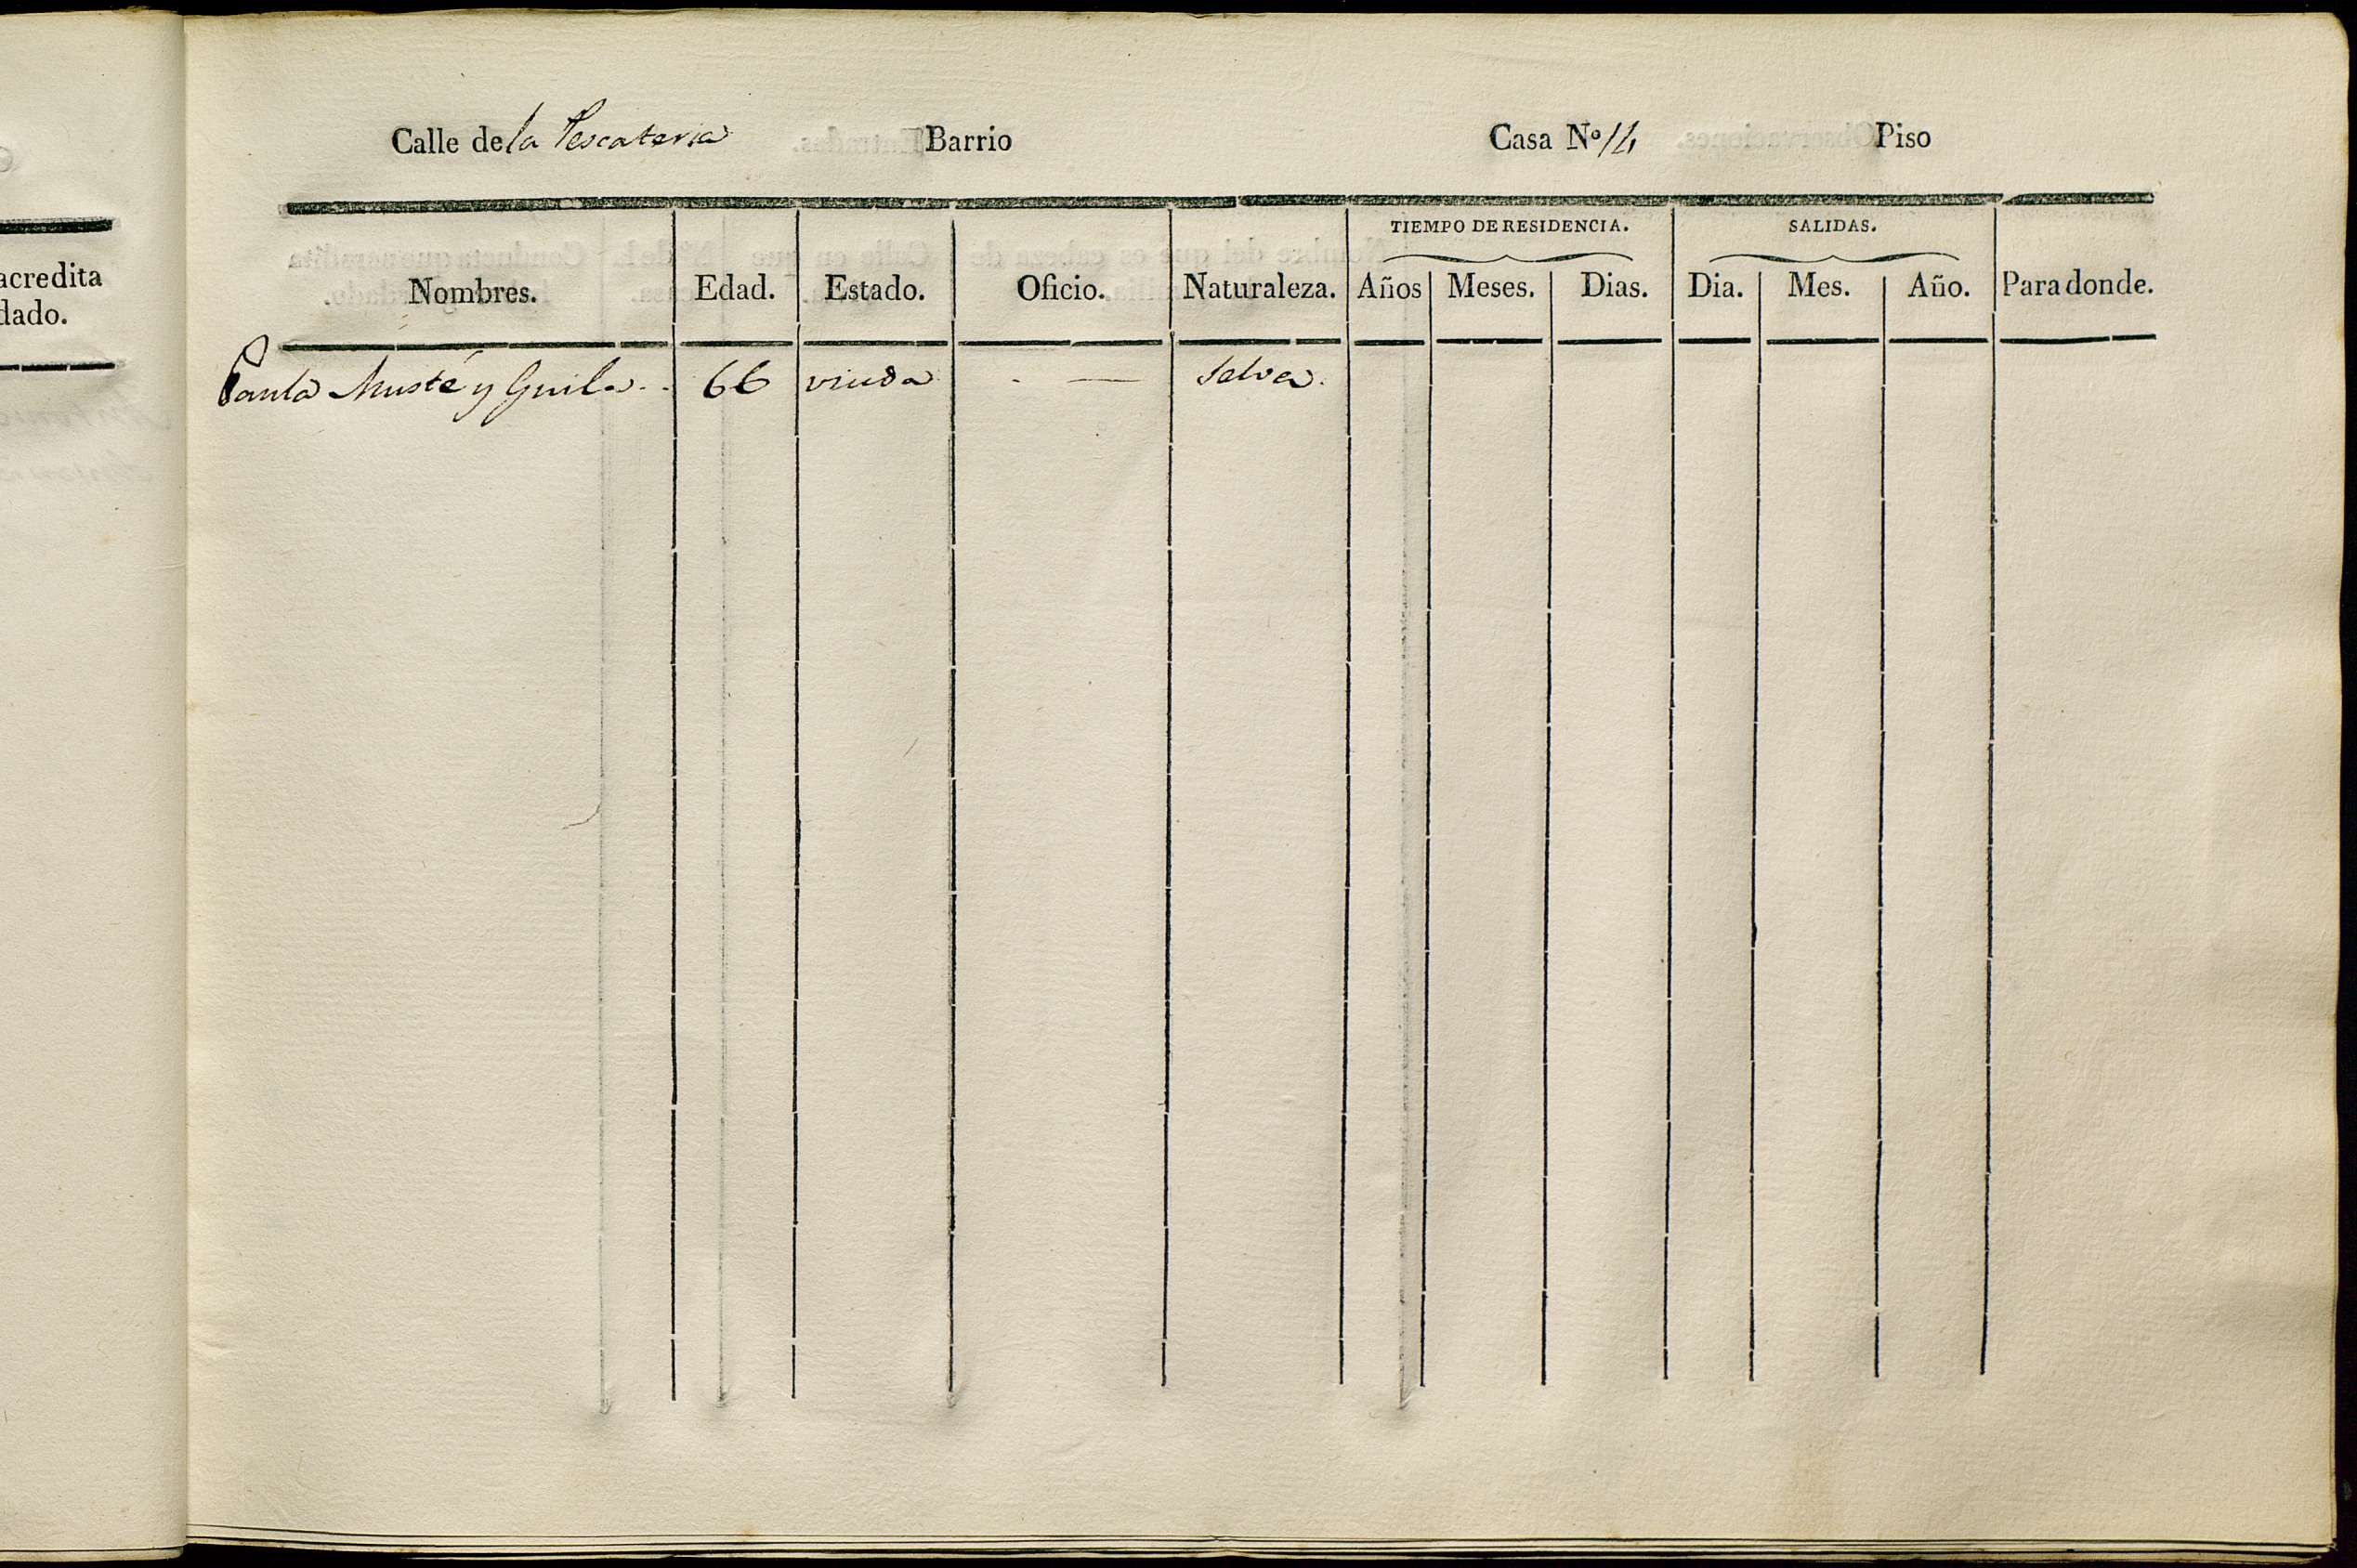 acredita
dado.
Calle de la Pescateria Barrio Casa Nº 14 Piso
TIEMPO DE RESIDENCIA. SALIDAS.
Nombres. Edad. Estado. Oficio. Naturaleza. Años Meses. Dias. Dia. Mes. Año. Para donde.
Paula Musté y Guila.. 66 viuda . — Selva.